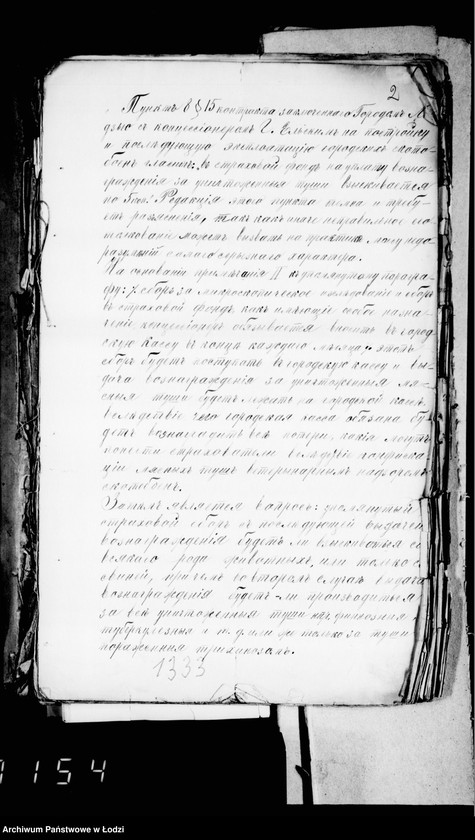 2
Пунктъ 8 § 15 контракта заключеннаго Городомъ
дзью съ концессіонеромъ Г. Ельскимъ на постройку
и послѣдующую эксплоатацію городскихъ ското-
боенъ гласитъ: въ страховой фондъ на уплату возна-
гражденія за уничтоженныя туши взыскивается
по Редакція этого пункта и требу-
етъ разъясненія, такъ какъ иначе неправильное его
толкованіе можетъ вызвать на практикѣ массу недо-
разумѣній самаго серьезнаго характера.
На основаніи примѣчанія II къ упомянутому парагра-
фу: сборъ за микроскопическое изслѣдованіе и сборъ
въ страховой фондъ, какъ имѣющіе особое назна-
ченіе, концессіонеръ обязывается вносить въ город-
скую кассу въ концѣ каждаго мѣсяца; этотъ
сборъ будетъ поступать въ городскую кассу и вы-
дача вознагражденія за уничтоженныя мя-
сныя туши будетъ лежать на городской кассѣ,
вслѣдствіе чего городская касса обязана бу-
детъ вознаградить всѣ потери, какія могутъ
понести страхователи вслѣдствіе
ціи мясныхъ тушъ ветеринарнымъ надзоромъ
скотобоенъ.
Затѣмъ является вопросъ: упомянутый
страховой сборъ съ послѣдующей выдачей
вознагражденія будетъ ли взыскиваться со
всякаго рода животныхъ, или только съ
свиней, причемъ во второмъ случаѣ выдача
вознагражденія будетъ ли производиться
за всѣ уничтоженныя туши
туберкулезныя и т. д. или же только за туши
пораженныя трихинозомъ.
1333
0154
Archiwum Państwowe w Łodzi